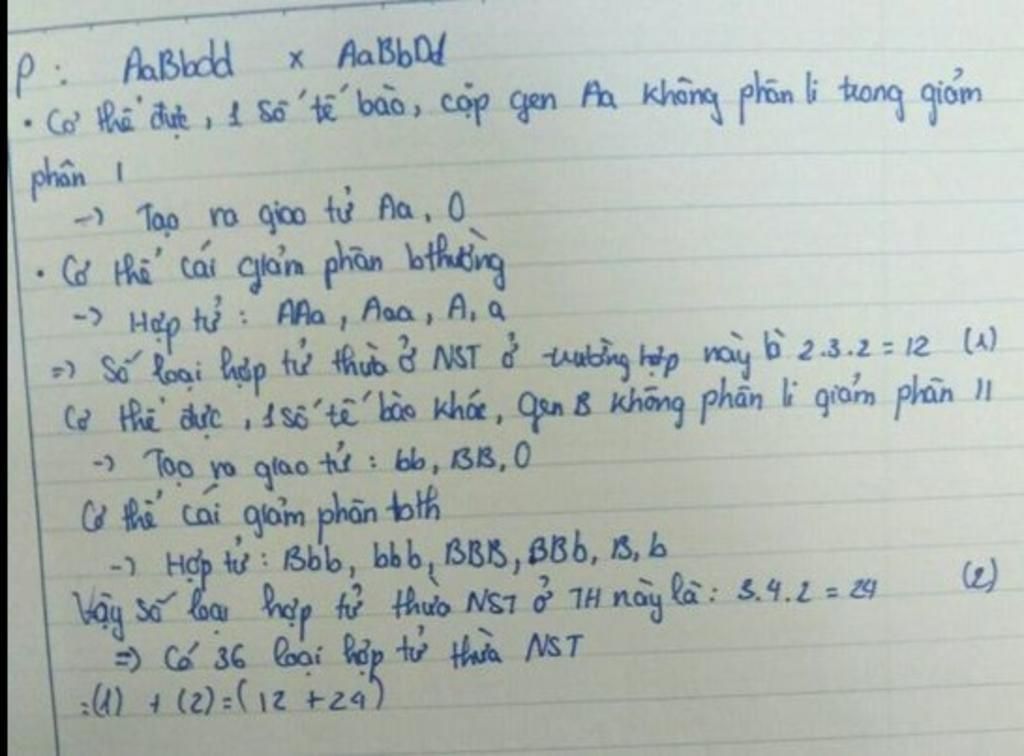 P: AaBbdd x AaBbDd
• Cơ thể đực, 1 số tế bào, cặp gen Aa không phân li trong giảm
phân 1
-> Tạo ra giao tử Aa, O
• Cơ thể cái giảm phân bthường
-> Hợp tử: AAa, Aaa, A, a
=> Số loại hợp tử thừa ở NST ở trường hợp này là 2.3.2 = 12 (1)
Cơ thể đực, 1 số tế bào khác, gen B không phân li giảm phân II
-> Tạo ra giao tử: bb, BB, O
Cơ thể cái giảm phân bth
-> Hợp tử: Bbb, bbb, BBB, BBb, B, b
Vậy số loại hợp tử thừa NST ở TH này là: 3.4.2 = 24 (2)
=> Có 36 loại hợp tử thừa NST
=(1) + (2)=(12 + 24)